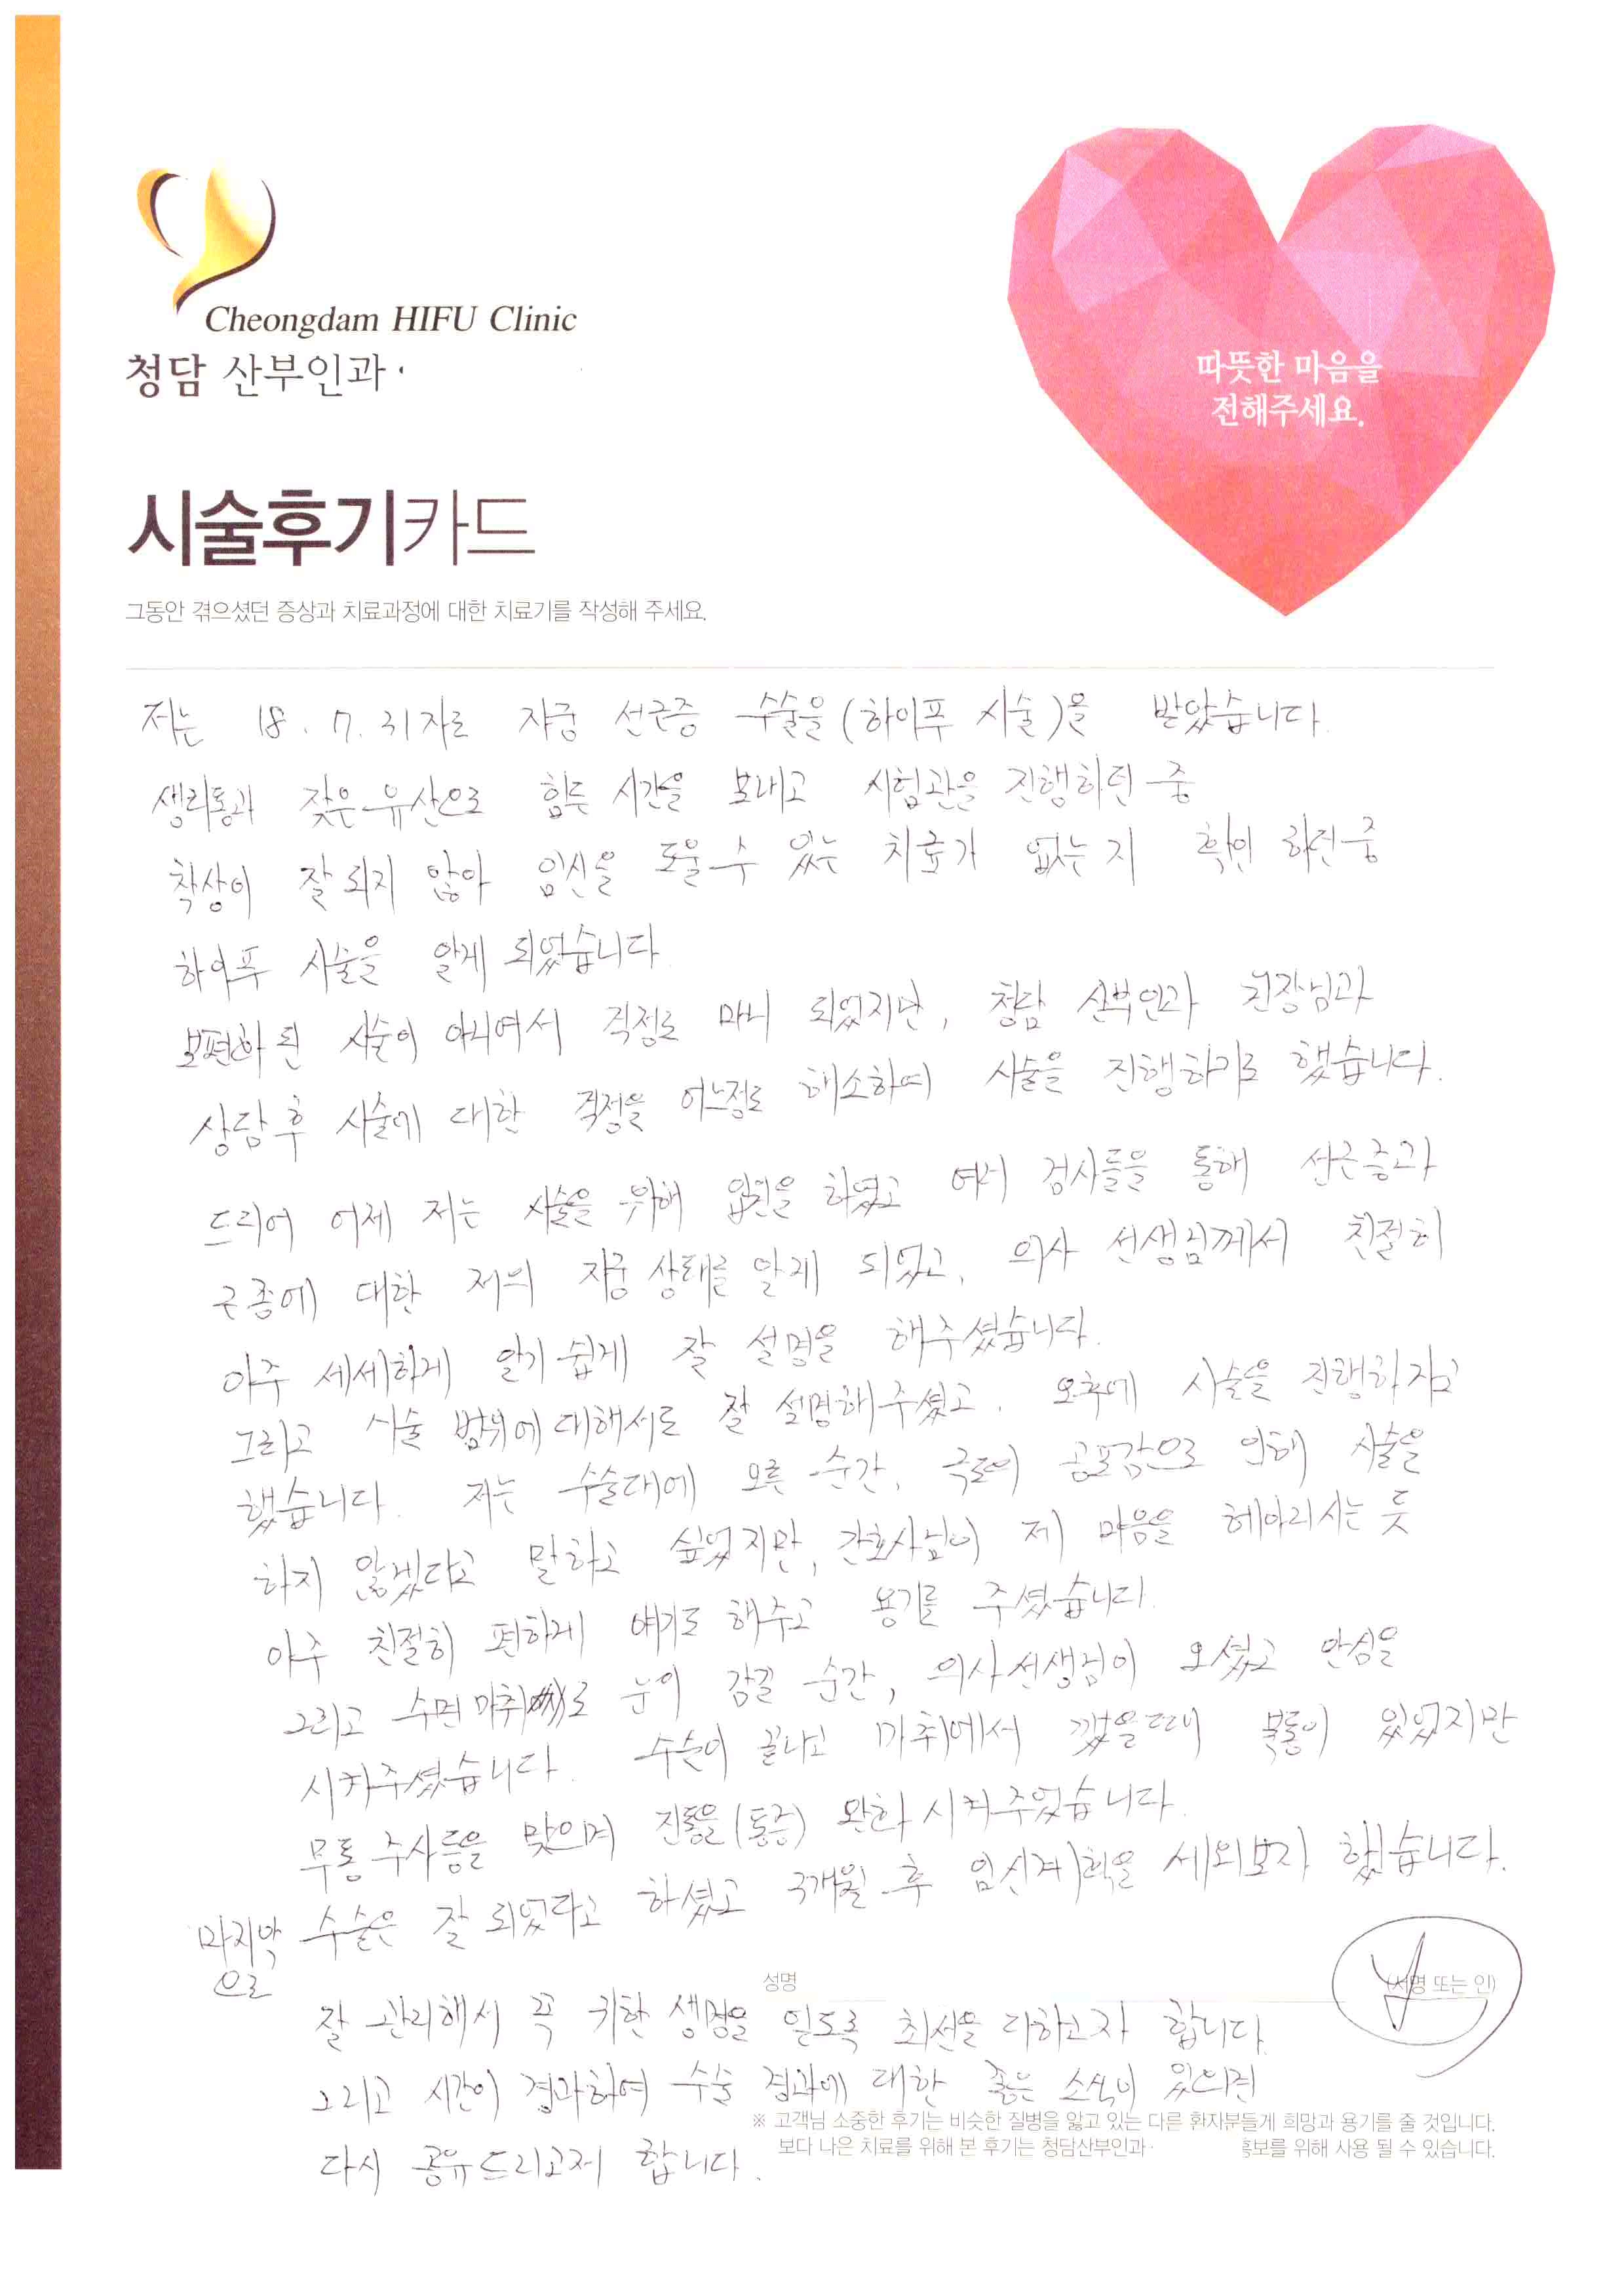 Cheongdam HIFU Clinic
청담 산부인과
따뜻한 마음을
전해주세요.
시술후기카드
그동안 겪으셨던 증상과 치료과정에 대한 치료기를 작성해 주세요.
저는 18. 7. 31자로 자궁 선근증 수술을 (하이푸 시술)을 받았습니다.
생리통과 잦은 유산으로 힘든 시간을 보내고 시험관을 진행하던 중
착상이 잘 되지 않아 임신을 도울 수 있는 치료가 없는지 확인 하던 중
하이푸 시술을 알게 되었습니다
보편화 된 시술이 아니여서 걱정도 마니 되었지만, 청담 산부인과 원장님과
상담 후 시술에 대한 걱정을 어느정도 해소하며 시술을 진행하기로 했습니다.
드리어 어제 저는 시술을 위해 입원을 하였고 여러 검사들을 통해 선근증과
근종에 대한 저의 자궁 상태를 알게 되었고, 의사 선생님께서 친절히
아주 세세하게 알기 쉽게 잘 설명을 해주셨습니다.
그리고 시술 범위에 대해서도 잘 설명해주셨고, 오후에 시술을 진행하자고
했습니다. 저는 수술대에 오른 순간, 극도의 공포감으로 인해 시술을
하지 않겠다고 말하고 싶었지만, 간호사님이 제 마음을 헤아리시는 듯
아주 친절히 편하게 얘기도 해주고 용기를 주셨습니다.
그리고 수면 마취로 눈이 감길 순간, 의사선생님이 오셨고 안심을
시켜주셨습니다. 수술이 끝나고 마취에서 깼을때 복통이 있었지만
무통 주사등을 맞으며 진통을 (통증) 완화 시켜 주었습니다.
수술은 잘 되었다고 하셨고 3개월 후 임신계획을 세워보자 했습니다.
마지막
으로
성명
(서명 또는 인)
잘 관리해서 꼭 귀한 생명을 잉도록 최선을 다하고자 합니다
그리고 시간이 경과하여 수술 경과에 대한 좋은 소식이 있으면
다시 공유드리고저 합니다.
※ 고객님 소중한 후기는 비슷한 질병을 앓고 있는 다른 환자분들게 희망과 용기를 줄 것입니다.
보다 나은 치료를 위해 본 후기는 청담산부인과 홍보를 위해 사용 될 수 있습니다.